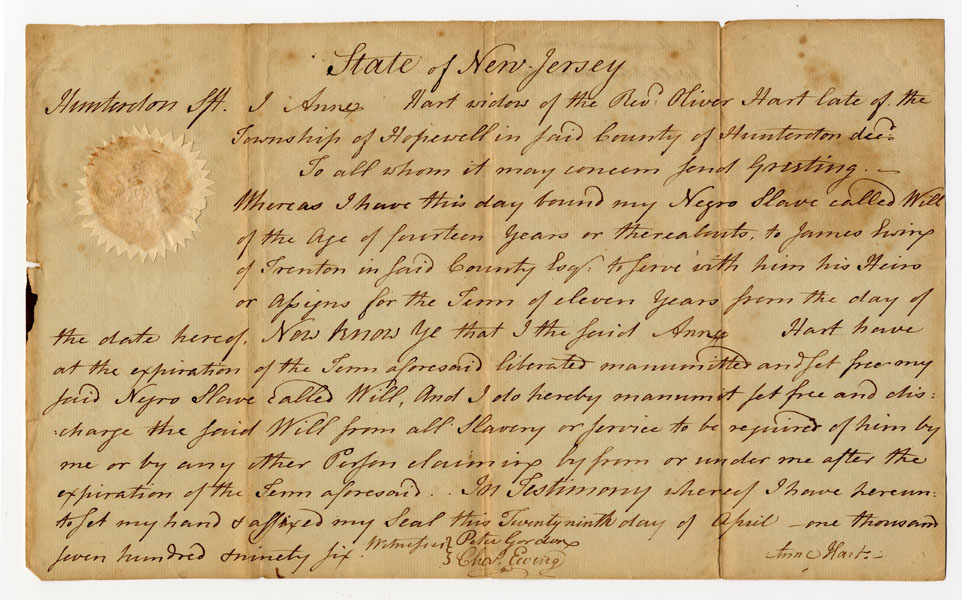 State of New Jersey
Hunterdon Ss. I Anne Hart widow of the Revd. Oliver Hart late of the
Township of Hopewell in said County of Hunterdon decd.
To all whom it may concern send Greeting. —
Whereas I have this day bound my Negro Slave called Will
of the Age of fourteen Years or thereabouts, to James Ewing
of Trenton in said County Esqr. to serve with him his Heirs
or Assigns for the Term of eleven Years from the day of
the date hereof. Now Know Ye that I the said Anne Hart have
at the expiration of the Term aforesaid liberated manumitted and set free my
said Negro Slave called Will, And I do hereby manumit set free and dis:
:charge the said Will from all Slavery or service to be required of him by
me or by any other Person claiming by from or under me after the
expiration of the Term aforesaid. In Testimony whereof I have hereun:
:to set my hand & affixed my Seal this Twenty ninth day of April — one thousand
seven hundred & ninety six. Witnesses Peter Gordon
Chas. Ewing
Anne Hart —